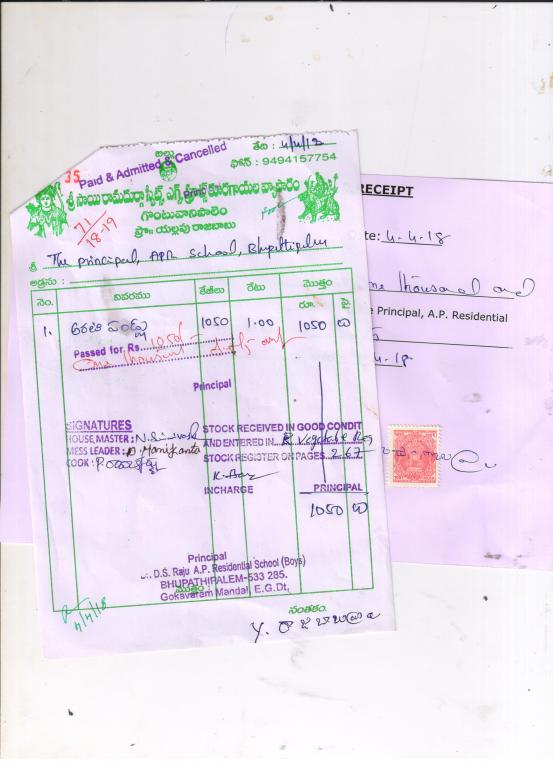 బిల్లు
తేది : 4/4/18
Paid & Admitted & Cancelled
ఫోన్ : 9494157754
35
శ్రీ సాయి రామదుర్గా ఫ్రూట్స్ ఎగ్స్ కూరగాయల వ్యాపారం
71
18-19
గొంటువానిపాలెం
ప్రొః యల్లపు రాజబాబు
శ్రీ The principal, APR School, Bhupathipalem
అడ్రసు :
నెం. వివరము కేజీలు రేటు మొత్తం
రూ. పై.
1. అరటి పండ్లు 1050 1.00 1050 00
Passed for Rs. 1050/-
One thousand
Principal
SIGNATURES
HOUSE MASTER : N.Srinivas
MESS LEADER : D. Manikanta
COOK :
STOCK RECEIVED IN GOOD CONDIT
AND ENTERED IN Vegetable Reg
STOCK REGISTER ON PAGES 267
INCHARGE PRINCIPAL
1050 00
Principal
D.S. Raju A.P. Residential School (Boys)
BHUPATHIPALEM-533 285.
మొత్తం
Gokavaram Mandal, E.G.Dt,
4/4/18
సంతకం.
Y. రాజబాబు
RECEIPT
te: 4-4-18
one thousand and
e Principal, A.P. Residential
4-18